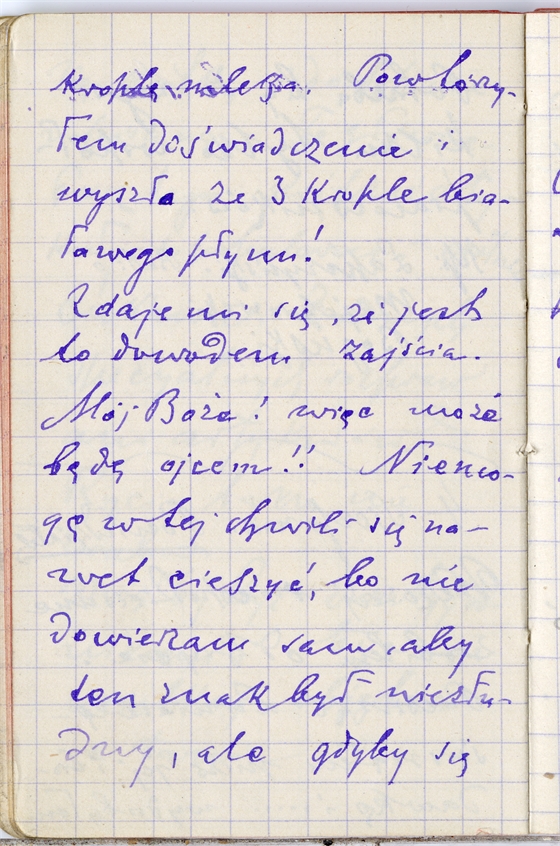 Kroplę mleka. Powtórzy-
łem doświadczenie i
wyszła ze 3 Krople bia-
ławego płynu!
Zdaje mi się, że jest
to dowodem zajścia.
Mój Boże! więc może
będę ojcem!! Niemo-
gę w tej chwili się na-
wet cieszyć, bo nie
dowierzam sam, aby
ten znak był niezłu-
dny, ale gdyby się